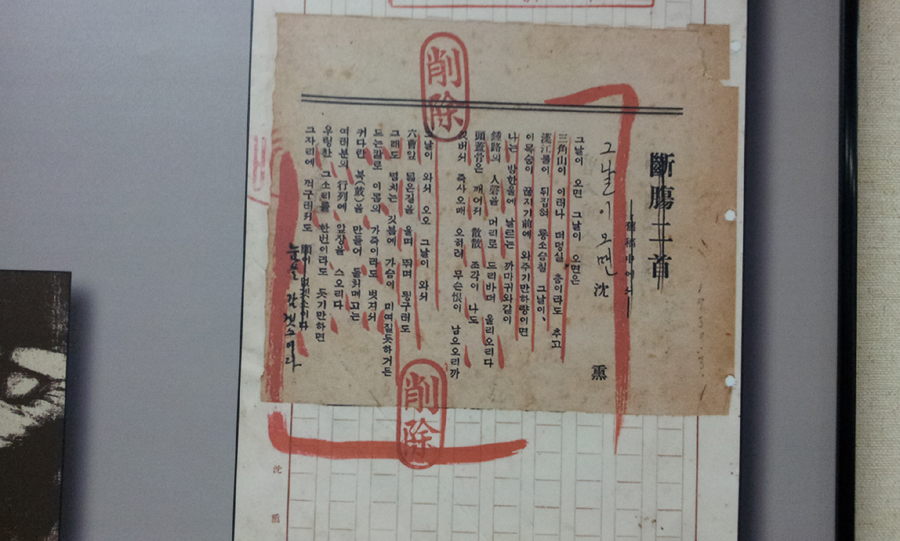 斷膓二首
—舊稿中에서—
그날이 오면
沈 熏
그날이 오면 그날이 오면은
三角山이 이러나 더덩실 춤이라도 추고
漢江물이 뒤집혀 룡소슴칠 그날이、
이목숨이 끊지기前에 와주기만하량이면
나는 밤한울에 날르는 까마귀와같이
鍾路의 人磬을 머리로 드리바더 울리오리다
頭蓋骨은 깨어저 散散 조각이 나도
깃버서 죽사오매 오히려 무슨恨이 남으오리까
그날이 와서 오오 그날이 와서
六曹앞 넓은길을 울며 뛰며 뒹구러도
그래도 넘치는 깃븜에 가슴이 미여질듯하거든
드는칼로 이몸의 가죽이라도 벗겨서
커다란 북(鼓)을 만들어 둘처메고는
여러분의 行列에 앞장을 스오리다
우렁찬 그소리를 한번이라도 듯기만하면
그자리에 꺽구러저도 願이 없겟소이다
눈을 감겟소이다
削除
削除
沈